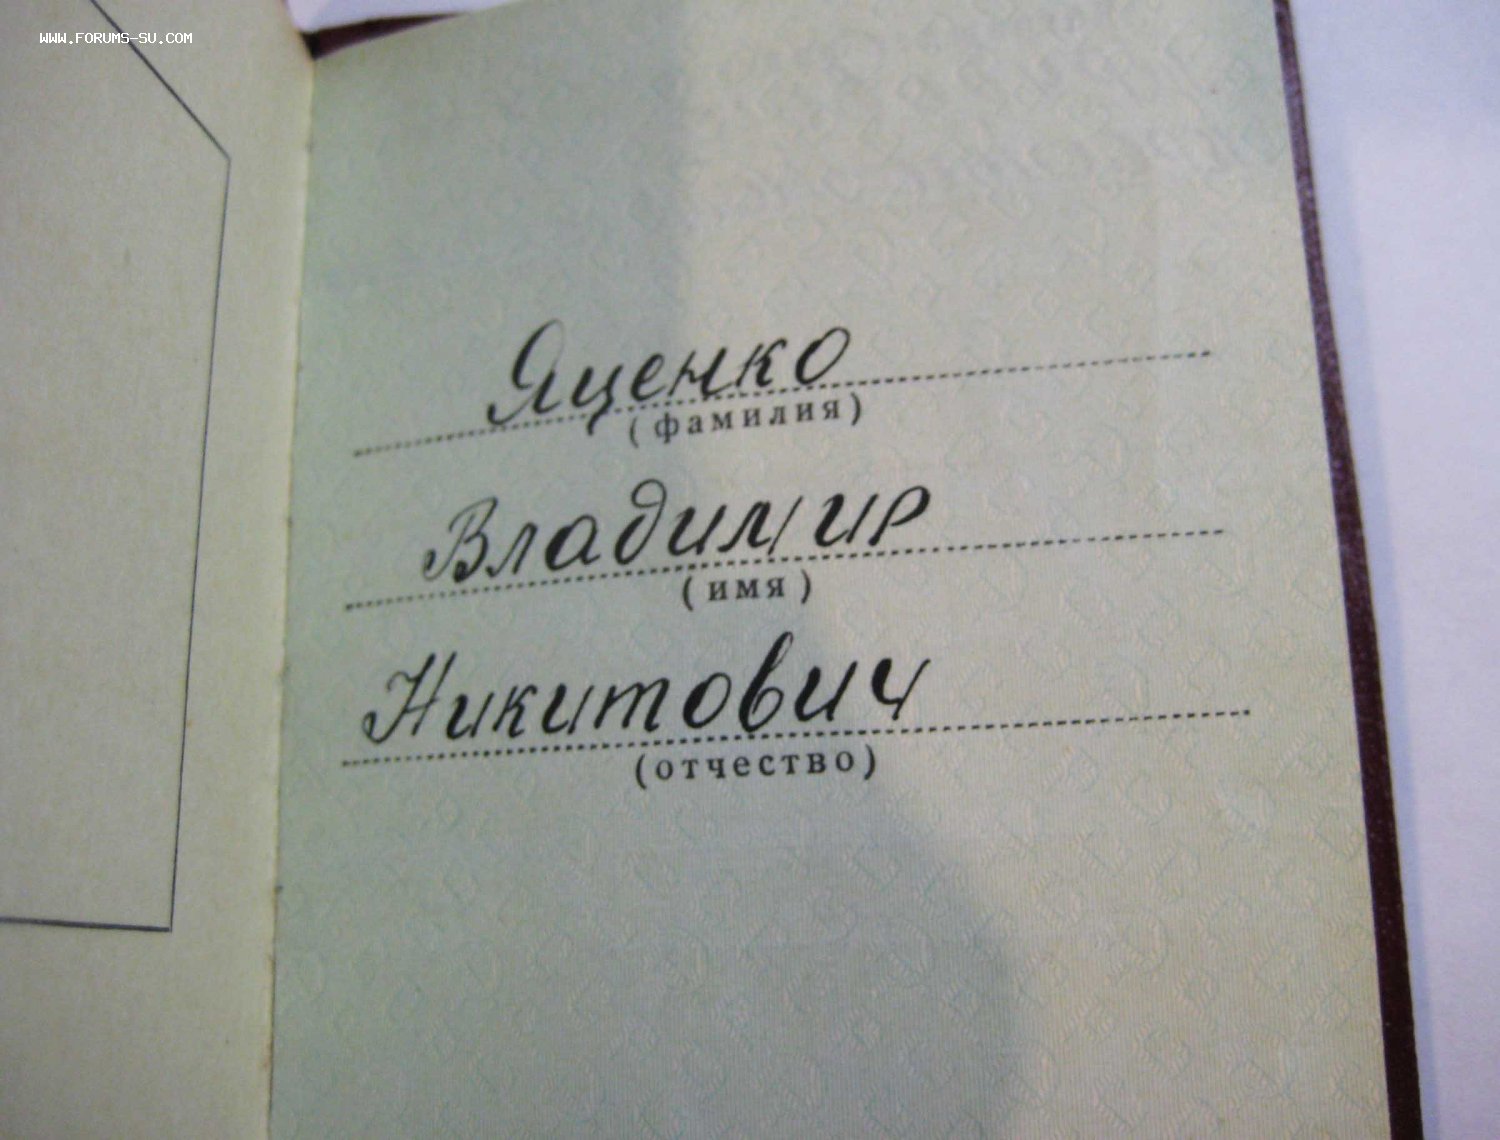 WWW.FORUMS-SU.COM
Яценко
(фамилия)
Владимир
(имя)
Никитович
(отчество)